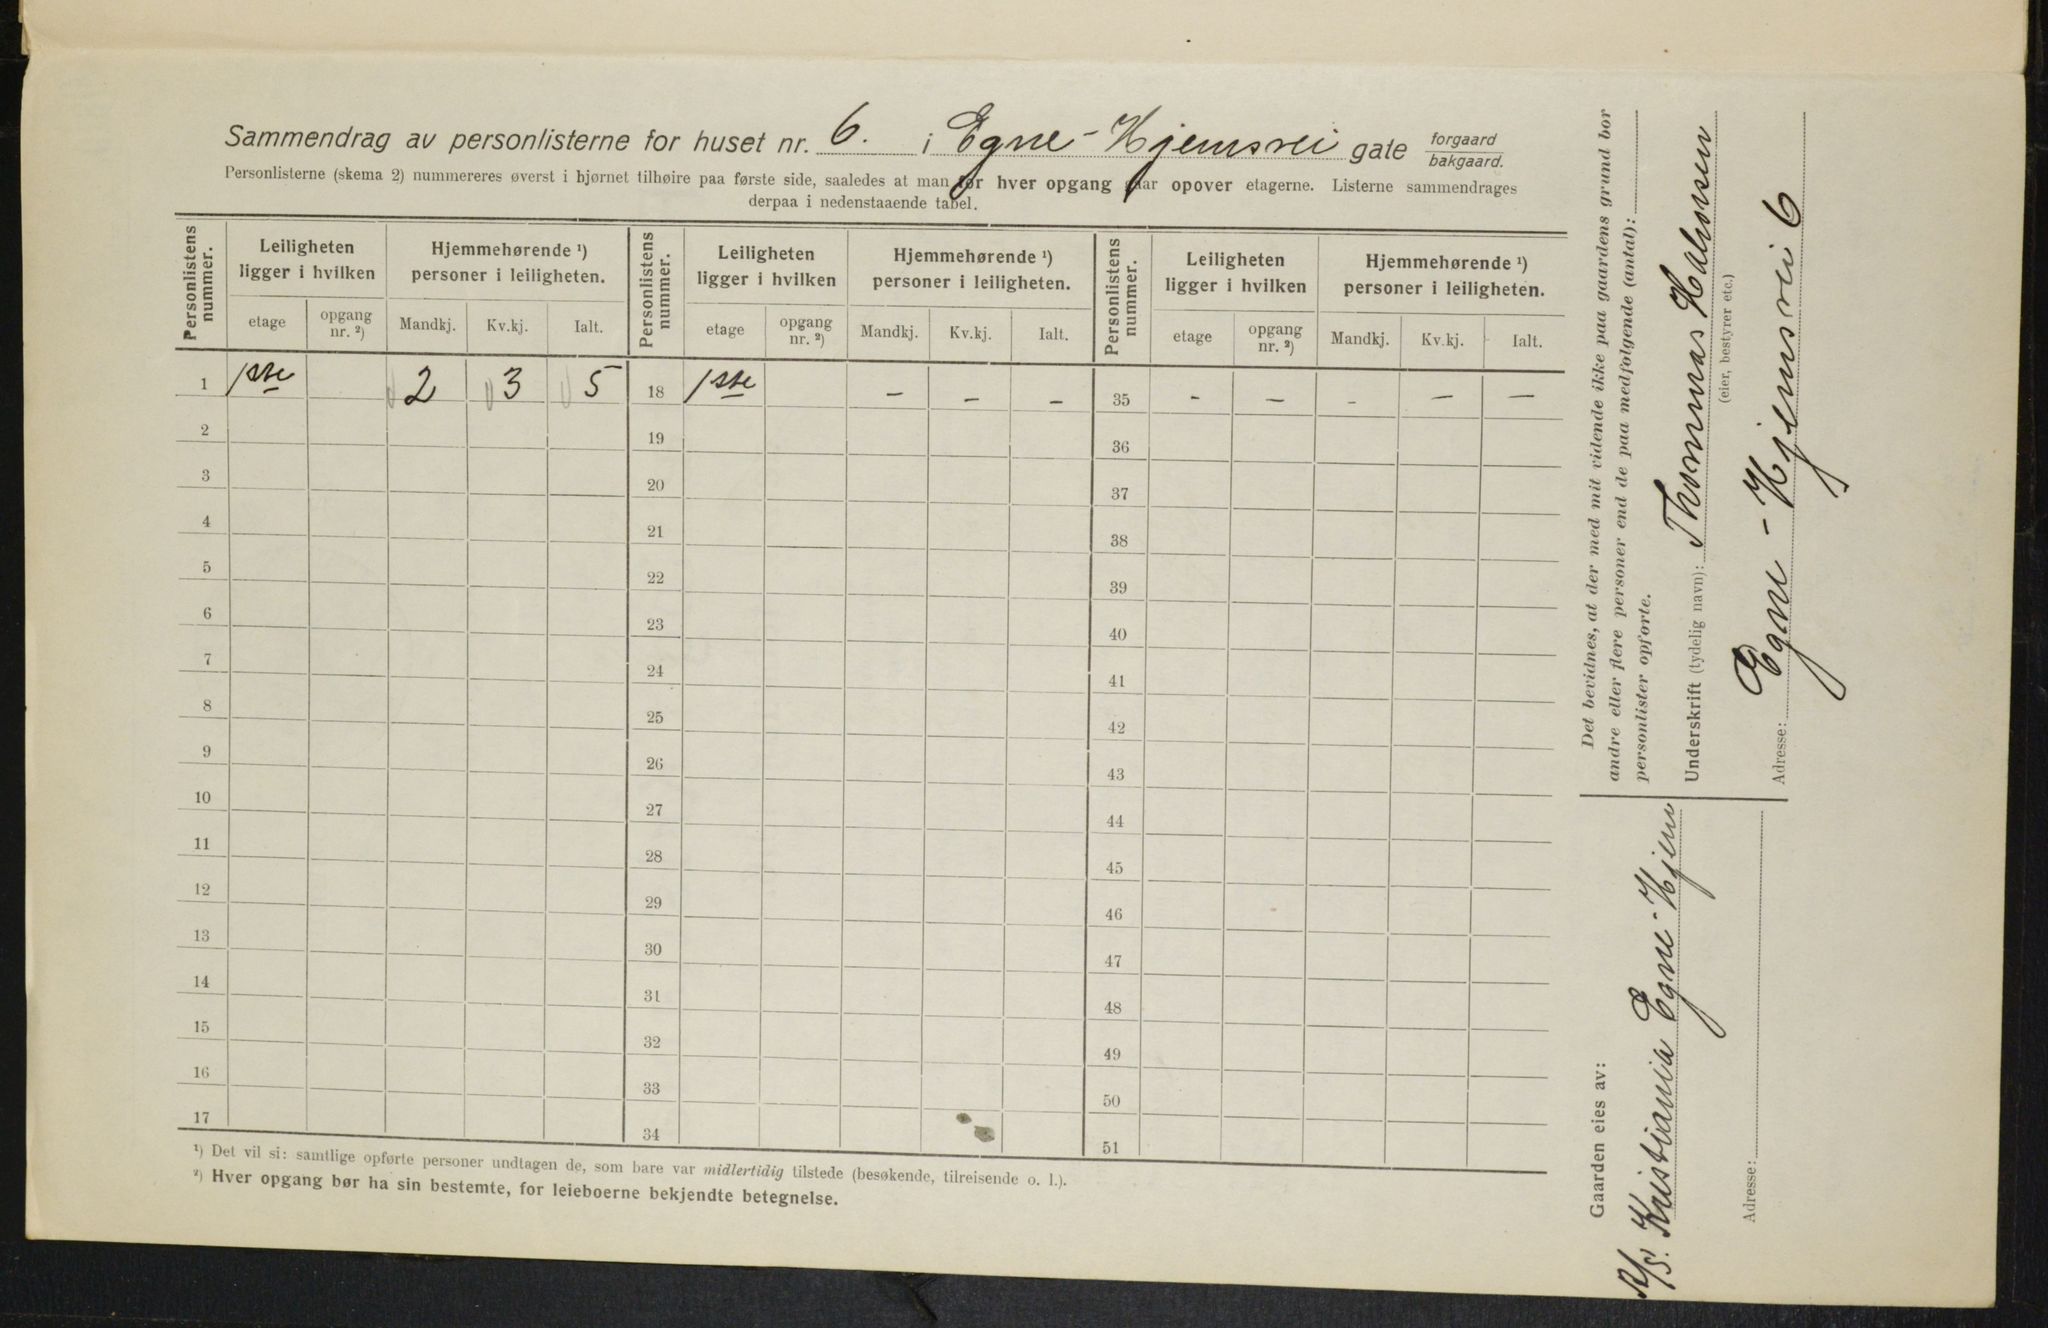 Sammendrag av personlisterne for huset nr. 6. i Egne-Hjemsvei gate forgaard
bakgaard.
Personlisterne (skema 2) nummereres øverst i hjørnet tilhøire paa første side, saaledes at man for hver opgang gaar opover etagerne. Listerne sammendrages
derpaa i nedenstaaende tabel.
Personlistens nummer. Leiligheten ligger i hvilken Hjemmehørende ¹) personer i leiligheten. Personlistens nummer. Leiligheten ligger i hvilken Hjemmehørende ¹) personer i leiligheten. Personlistens nummer. Leiligheten ligger i hvilken Hjemmehørende ¹) personer i leiligheten.
etage opgang nr. ²) Mandkj. Kv.kj. Ialt. etage opgang nr. ²) Mandkj. Kv.kj. Ialt. etage opgang nr. ²) Mandkj. Kv.kj. Ialt.
1 1ste 2 3 5 18 1ste - - - 35 - - - - -
2 19 36
3 20 37
4 21 38
5 22 39
6 23 40
7 24 41
8 25 42
9 26 43
10 27 44
11 28 45
12 29 46
13 30 47
14 31 48
15 32 49
16 33 50
17 34 51
¹) Det vil si: samtlige opførte personer undtagen de, som bare var midlertidig tilstede (besøkende, tilreisende o. l.).
²) Hver opgang bør ha sin bestemte, for leieboerne bekjendte betegnelse.
Det bevidnes, at der med mit vidende ikke paa gaardens grund bor
andre eller flere personer end de paa medfølgende (antal):
personlister opførte.
Underskrift (tydelig navn): Thommas Halvorsen
(eier, bestyrer etc.)
Adresse: Egne-Hjemsvei 6
Gaarden eies av:
A/S. Kristiania Egne-Hjem
Adresse: